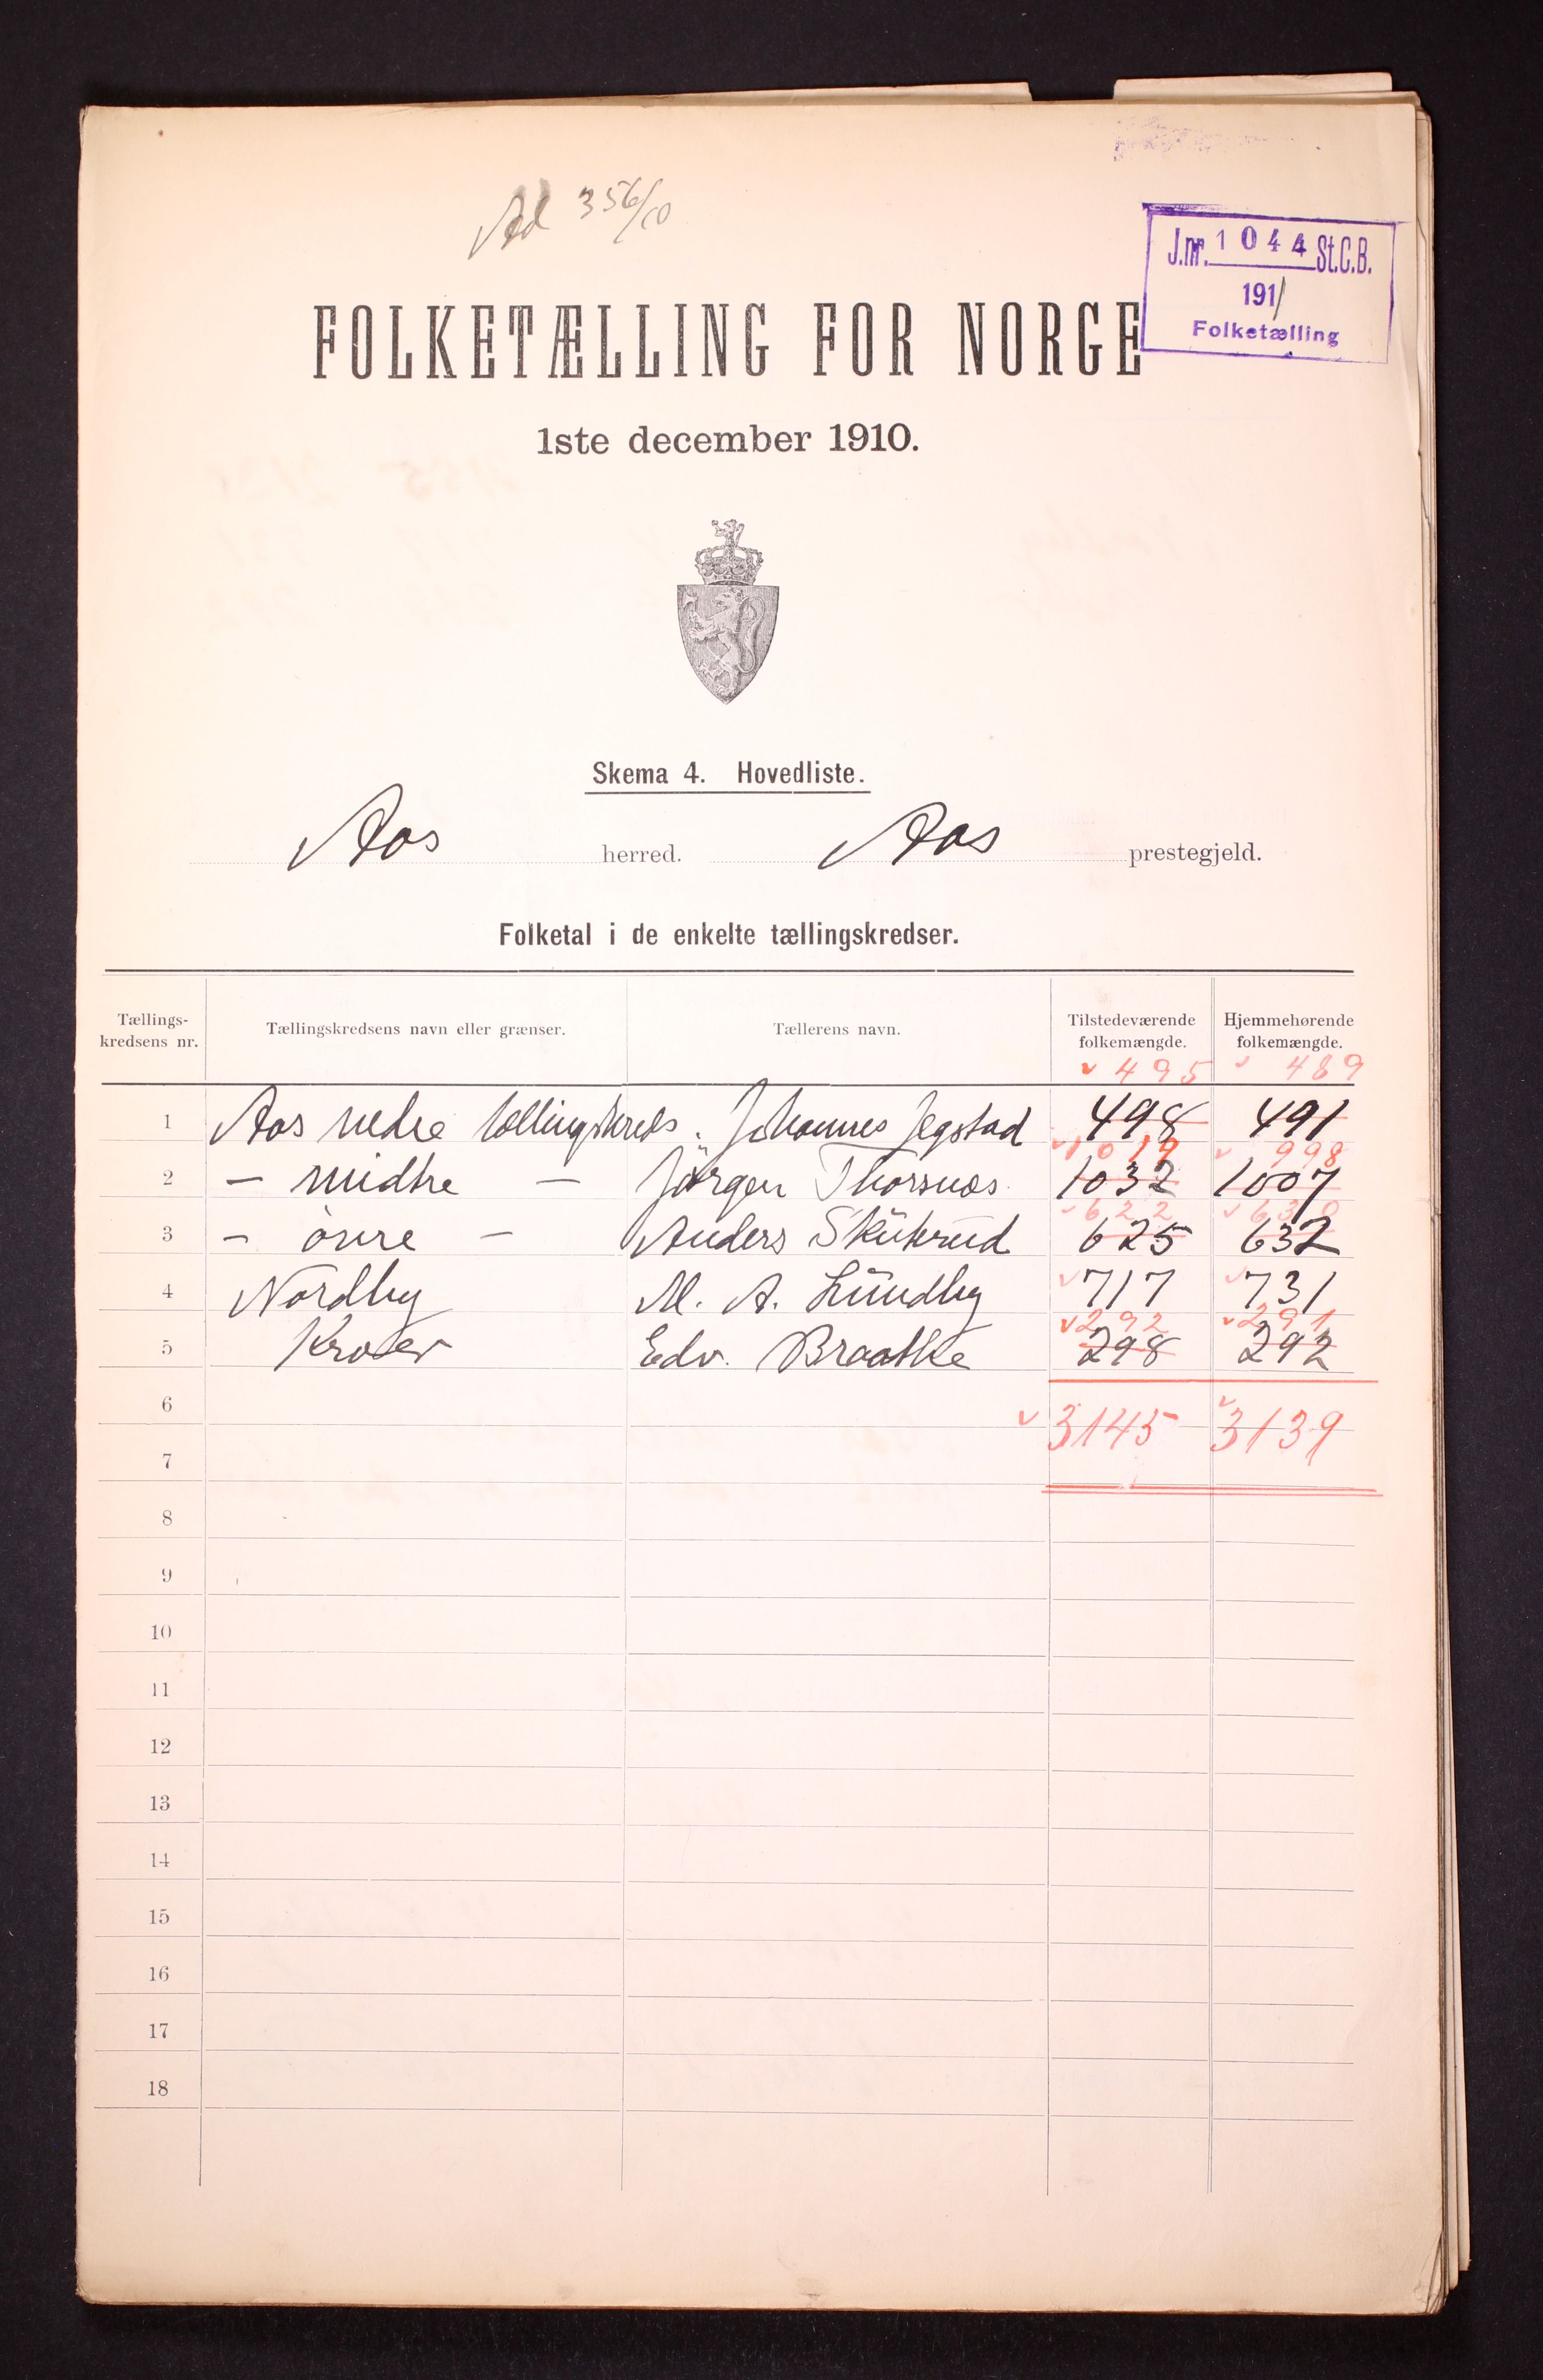 Ad 356/10
J.nr. 1044 St.C.B.
1911
Folketælling
FOLKETÆLLING FOR NORGE
1ste december 1910.
Skema 4. Hovedliste.
Aas herred. Aas prestegjeld.
Folketal i de enkelte tællingskredser.
Tællings-kredsens nr. Tællingskredsens navn eller grænser. Tællerens navn. Tilstedeværende folkemængde. Hjemmehørende folkemængde.
495 489
1 Aas nedre tællingskreds. Johannes Jegstad 498 491
1019 998
2 — midtre — Jörgen Thorsnæs 1032 1007
622 630
3 — övre — Anders Skuterud 625 632
4 Nordby M. A. Lundby 717 731
292 291
5 Kroer Edv. Braathe 298 292
6
3145 3139
7
8
9
10
11
12
13
14
15
16
17
18